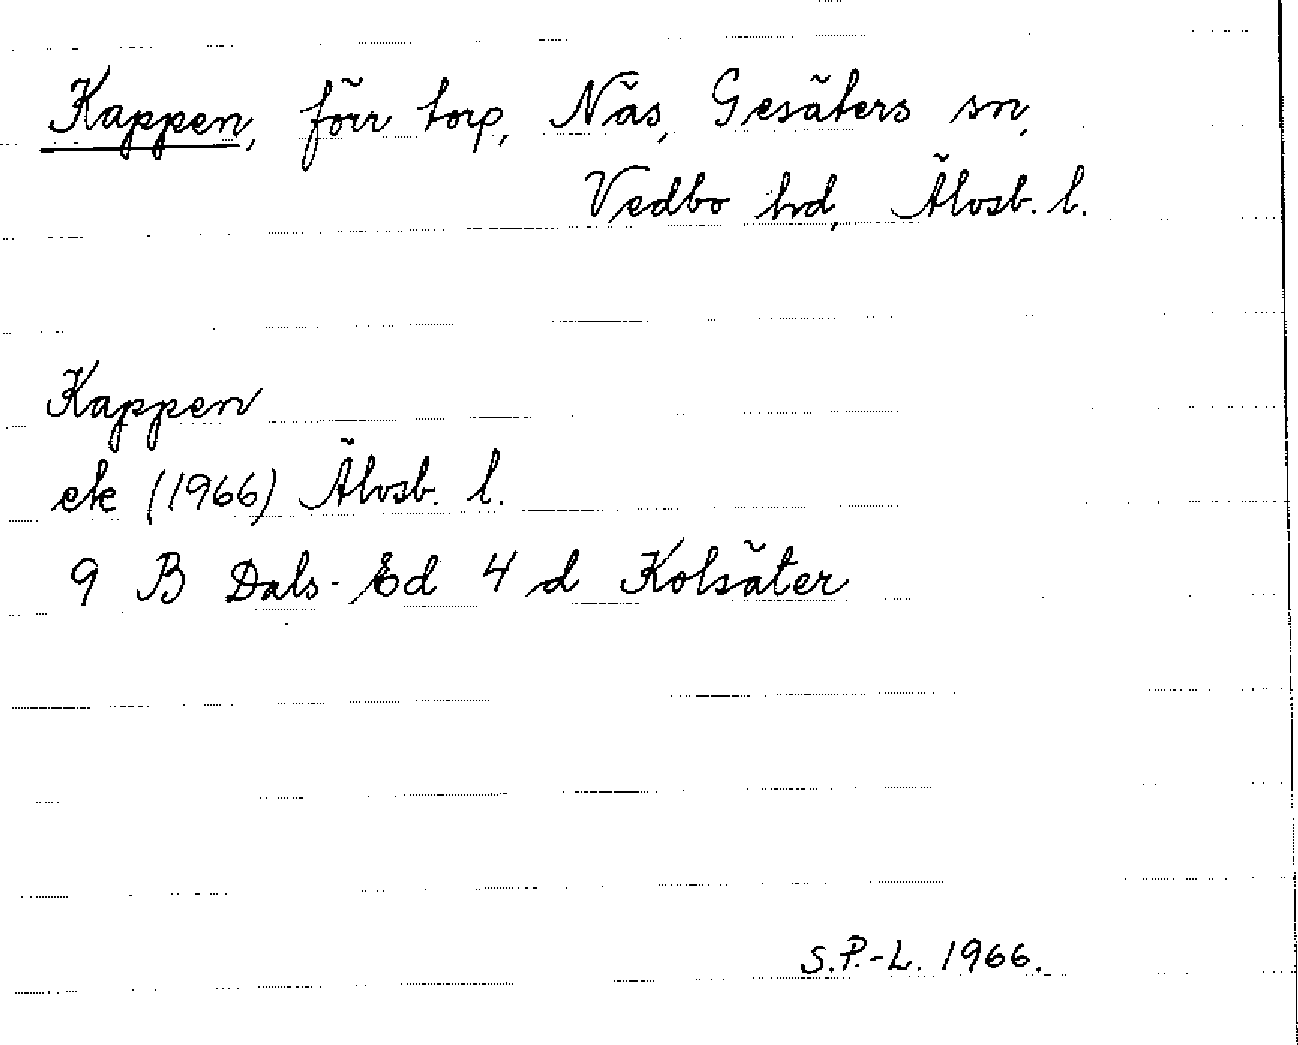 Kappen, förr torp, Näs, Gesäters sn,
Vedbo hd, Älvsb. l.
Kappen
ek (1966) Älvsb. l.
9 B Dals-Ed 4 d Kolsäter
S.P.-L. 1966.